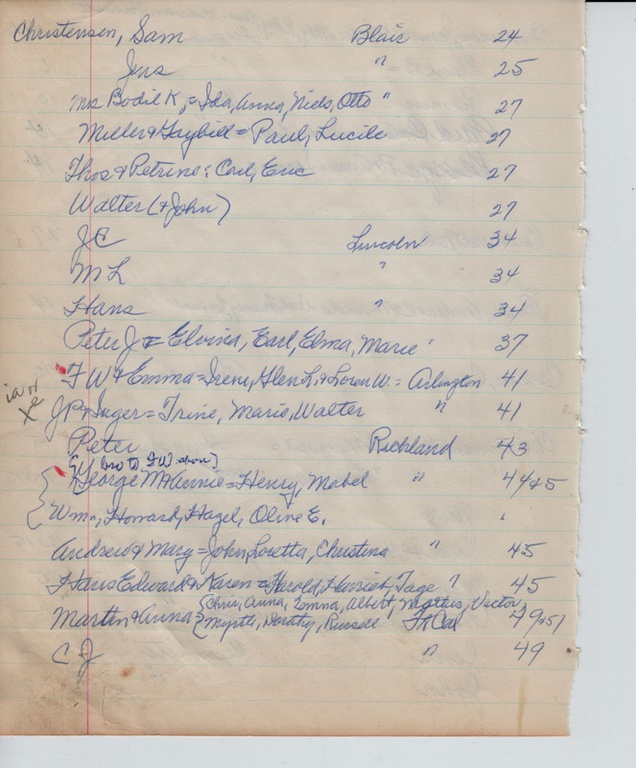 Christensen, Sam Blair 24
Jens " 25
Mrs Bodil K, = Ida, Anna, Niels, Otto " 27
Miller & Graybill = Paul, Lucile 27
Thos & Petrine = Carl, Eric 27
Walter (& John) 27
JC Lincoln 34
M L " 34
Hans " 34
Peter J & = Elvina, Earl, Elma, Marie " 37
F W & Emma = Irene, Glen L. & Loren W. = Arlington 41
JP & Inger = Trine, Marie, Walter " 41
Peter Richland 43
[bro to FW above]
George M & Annie = Henry, Mabel " 44+45
Wm., Howard, Hazel, Olive E.
Andrew & Mary = John, Loretta, Christina " 45
Hans Edward & Karen = Harold, Harriet, Tage " 45
Martin & Anna = { Chris, Anna, Emma, Albert, Victor,
Myrtle, Dorothy, Russell Ft Cal 49+51
C J " 49